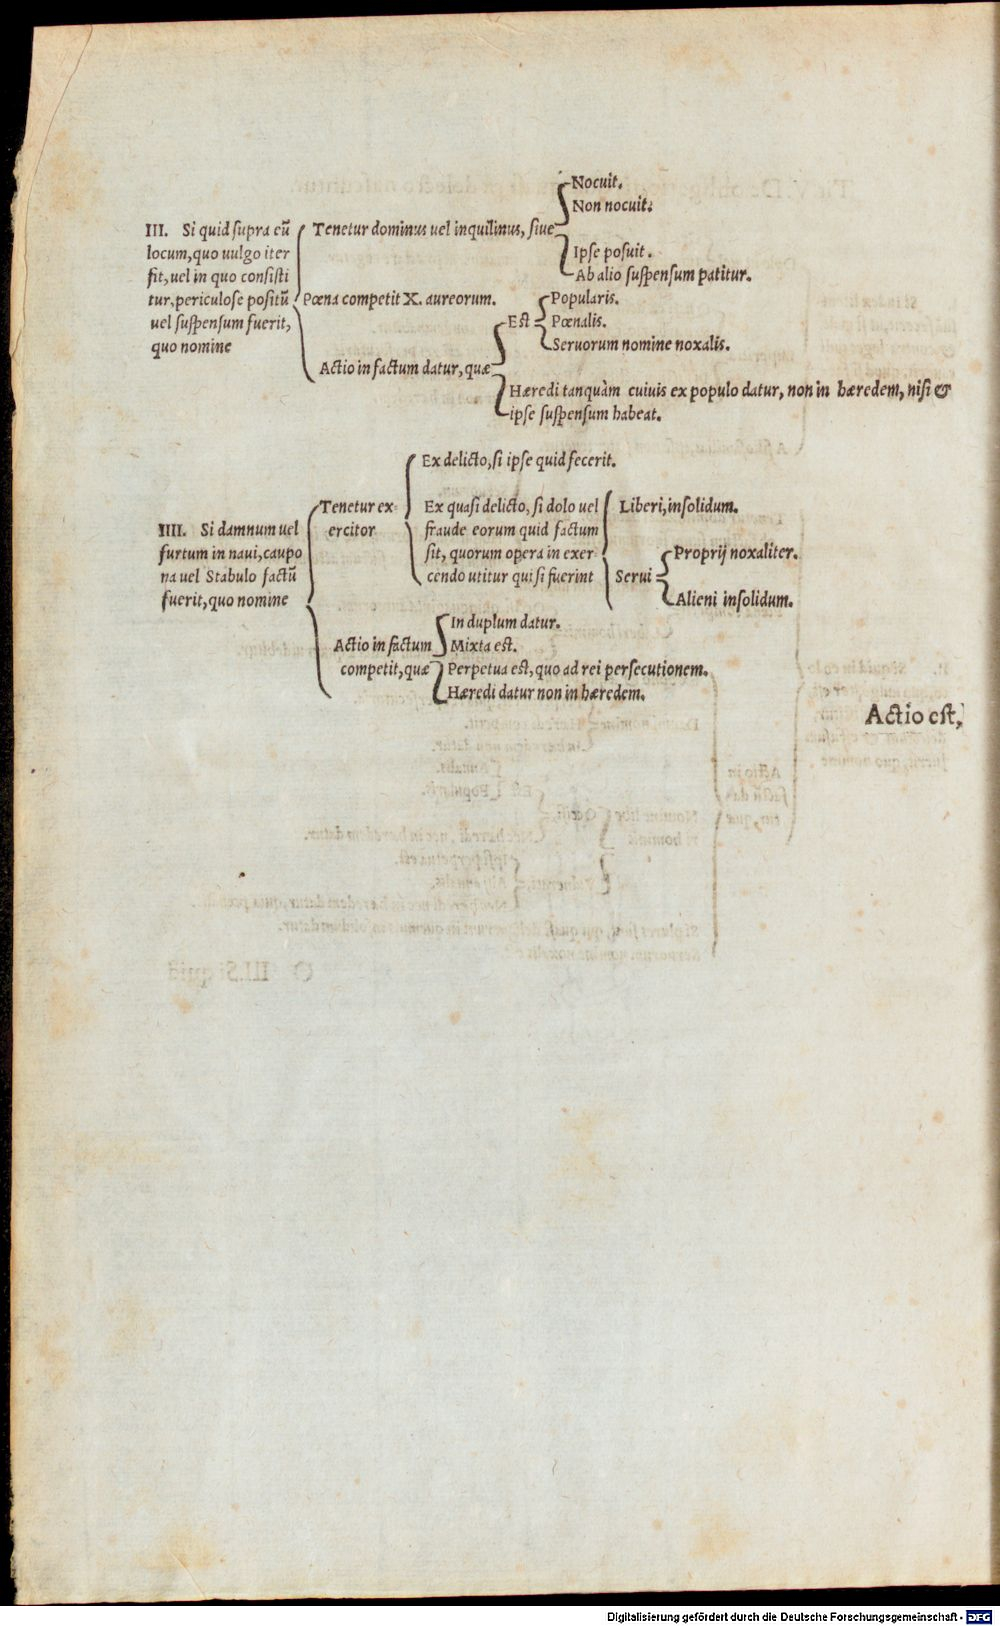 Nocuit.
Non nocuit.
III. Si quid supra eũ
locum, quo vulgo iter
fit, vel in quo consisti
tur, periculose positũ
vel suspensum fuerit,
quo nomine
Tenetur dominus vel inquilinus, sive
Ipse posuit.
Ab alio suspensum patitur.
Pœna competit X. aureorum.
Actio in factum datur, quæ
Est
Popularis.
Pœnalis.
Servorum nomine noxalis.
Hæredi tanquàm cuiuis ex populo datur, non in hæredem, nisi &
ipse suspensum habeat.
IIII. Si damnum uel
furtum in naui, caupo
na uel Stabulo factũ
fuerit, quo nomine
Tenetur ex-
ercitor
Ex delicto, si ipse quid fecerit.
Ex quasi delicto, si dolo uel
fraude eorum quid factum
sit, quorum opera in exer-
cendo utitur qui si fuerint
Liberi, insolidum.
Servi
Proprij noxaliter.
Alieni insolidum.
Actio in factum
competit, quæ
In duplum datur.
Mixta est.
Perpetua est, quo ad rei persecutionem.
Hæredi datur non in hæredem.
Actio est,
Digitalisierung gefördert durch die Deutsche Forschungsgemeinschaft - DFG